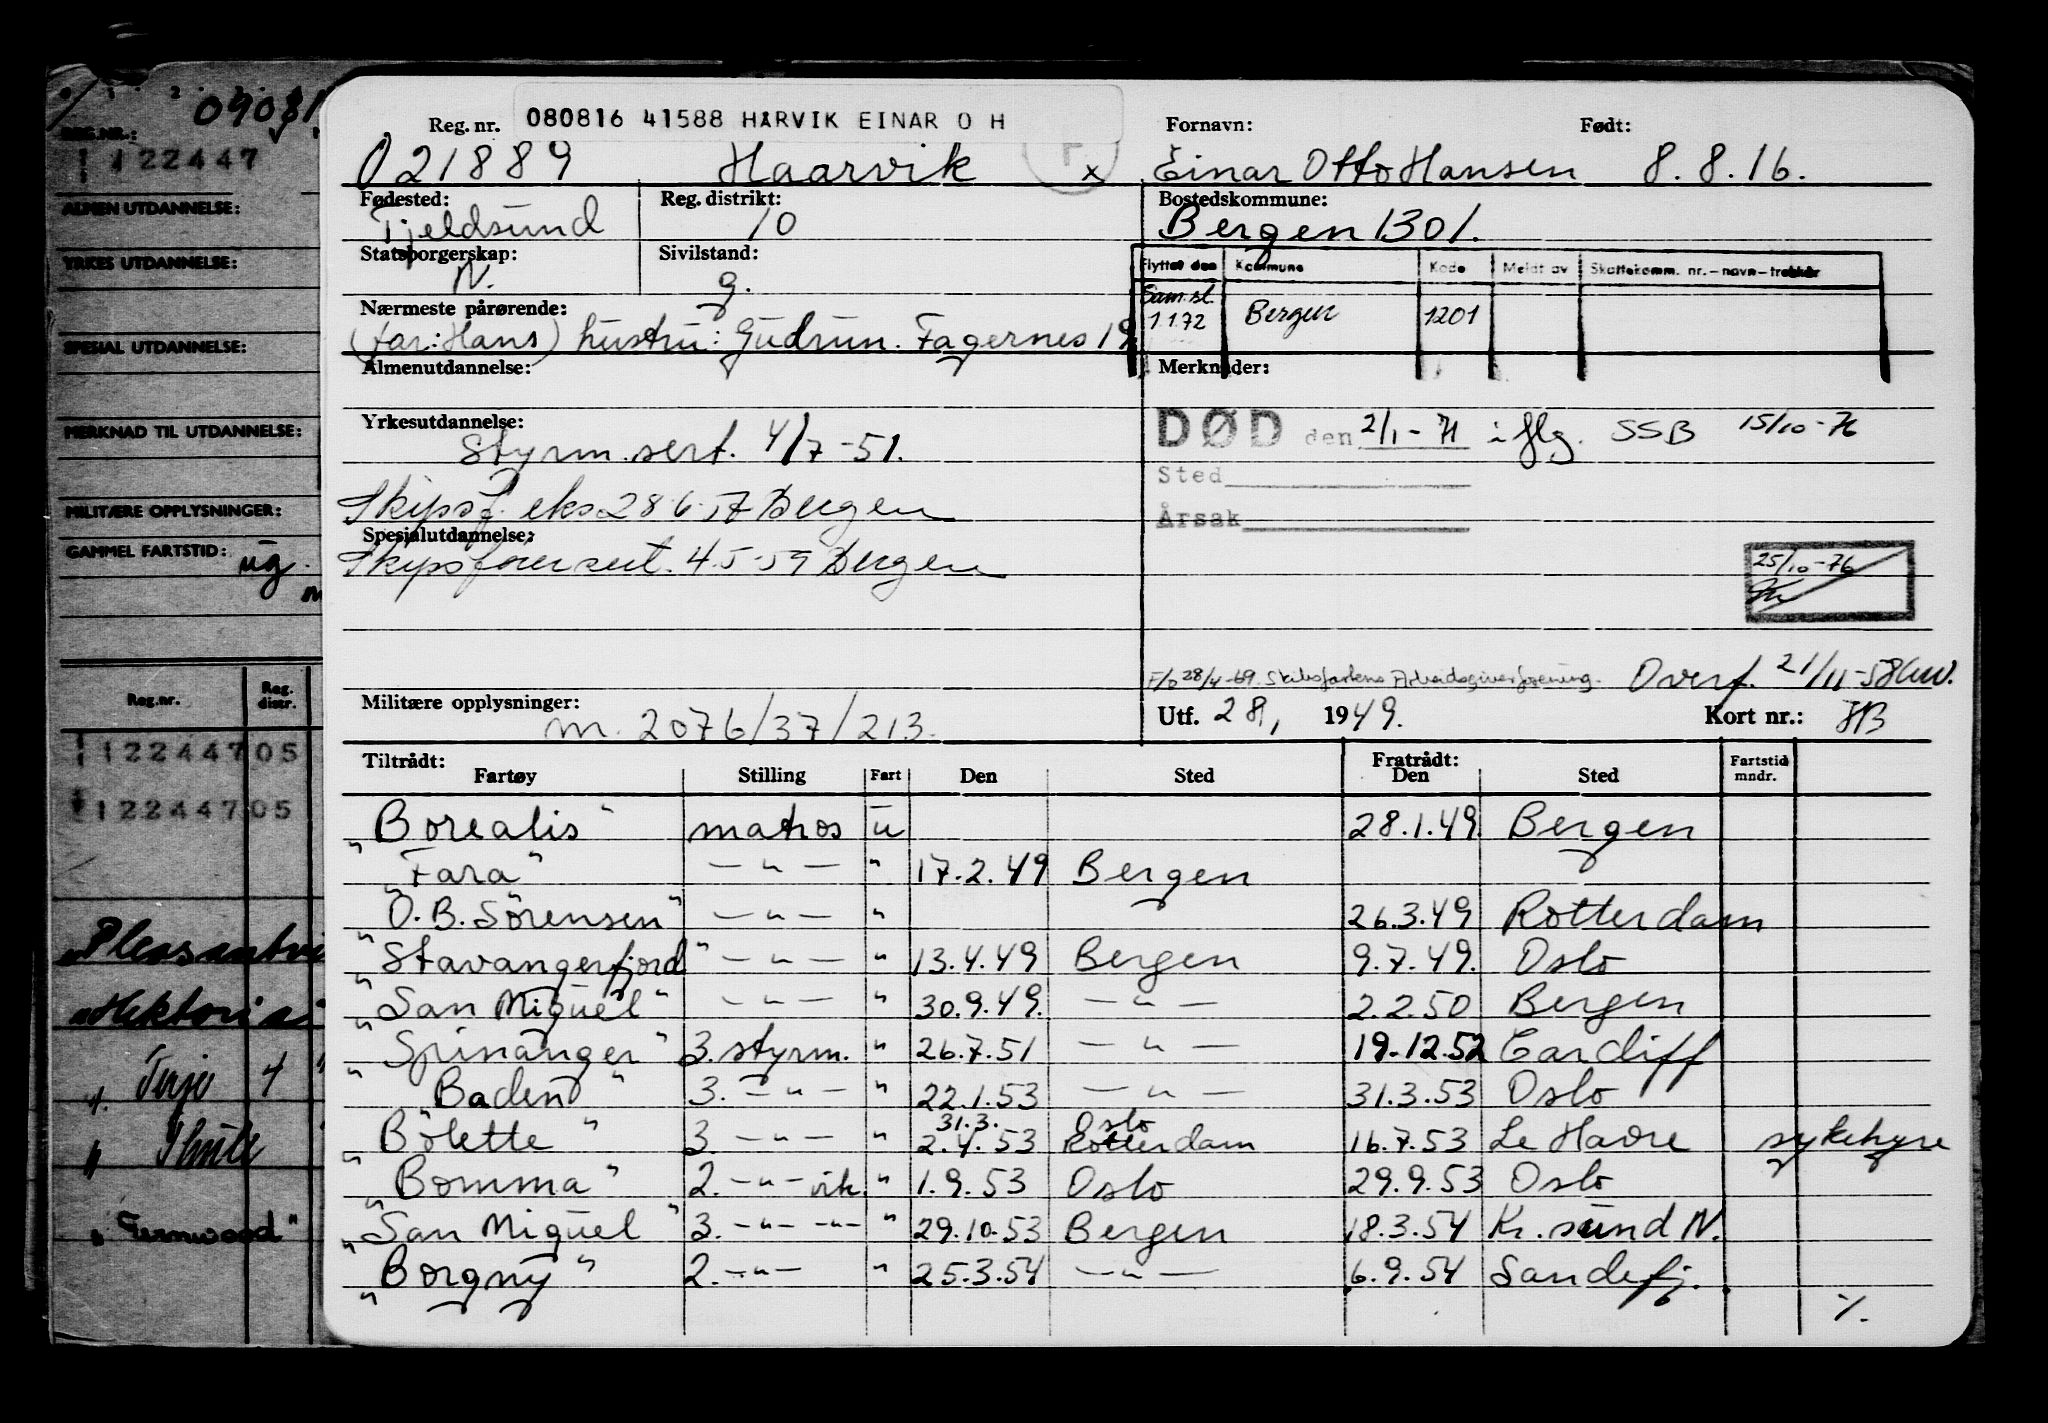 REG.NR.:
122447
ALMEN UTDANNELSE:
YRKES UTDANNELSE:
SPESIAL UTDANNELSE:
MERKNAD TIL UTDANNELSE:
MILITÆRE OPPLYSNINGER:
GAMMEL FARTSTID:
Reg.nr. Reg. distr.
122447 05
122447 05
"Terje 4
" Thule
" Fernwood"
Reg. nr. 080816 41588 HARVIK EINAR O H Fornavn: Født:
021889 Haarvik x Einar Otto Hansen 8.8.16.
Fødested: Reg. distrikt: Bostedskommune:
Fjeldsund 10 Bergen 1301.
Statsborgerskap: Sivilstand: Flyttet den Kommune Kode Meldt av Skattekomm. nr.-navn-trekkår
N. g.
Sam.st. 1.1.72 Bergen 1201
Nærmeste pårørende:
(far: Hans) hustru: Gudrun. Fagernes 19
Almenutdannelse: Merknader:
Yrkesutdannelse: DØD den 2/1-71 iflg. SSB 15/10-76
Styrm. sert. 4/7-51.
Sted
Skipsf. eks 28.6.57 Bergen Årsak
Spesialutdannelse:
Skipsførersert. 4.5-59 Bergen 25/10-76
F/o 28/4-69. Skibsfartens Arbeidsgiverforening. Overf. 21/11-58
Militære opplysninger: Utf. 28/1 1949. Kort nr.:
m. 2076/37/213.
Tiltrådt: Fratrådt:
Fartøy Stilling Fart Den Sted Den Sted Fartstid mndr.
"Borealis" matros u 28.1.49 Bergen
"Fara" -"- " 17.2.49 Bergen
"O.B. Sörensen" -"- " 26.3.49 Rotterdam
"Stavangerfjord" -"- " 13.4.49 Bergen 9.7.49. Oslo
"San Miguel" -"- " 30.9.49. -"- 2.2.50 Bergen
"Spinanger" 3. styrm. " 26.7.51 -"- 19.12.52 Cardiff
"Baden" 3. -"- " 22.1.53 -"- 31.3.53 Oslo
31.3. Oslo
"Bolette" 3. -"- " 2.4.53 Rotterdam 16.7.53 Le Havre sykehyre
"Bomma" 2. -"- vik. " 1.9.53 Oslo 29.9.53 Oslo
"San Miguel" 3. -"- -"- " 29.10.53 Bergen 18.3.54 Kr.sund N.
"Borgny" 2. -"- " 25.3.54 -"- 6.9.54 Sandefj.
·/.